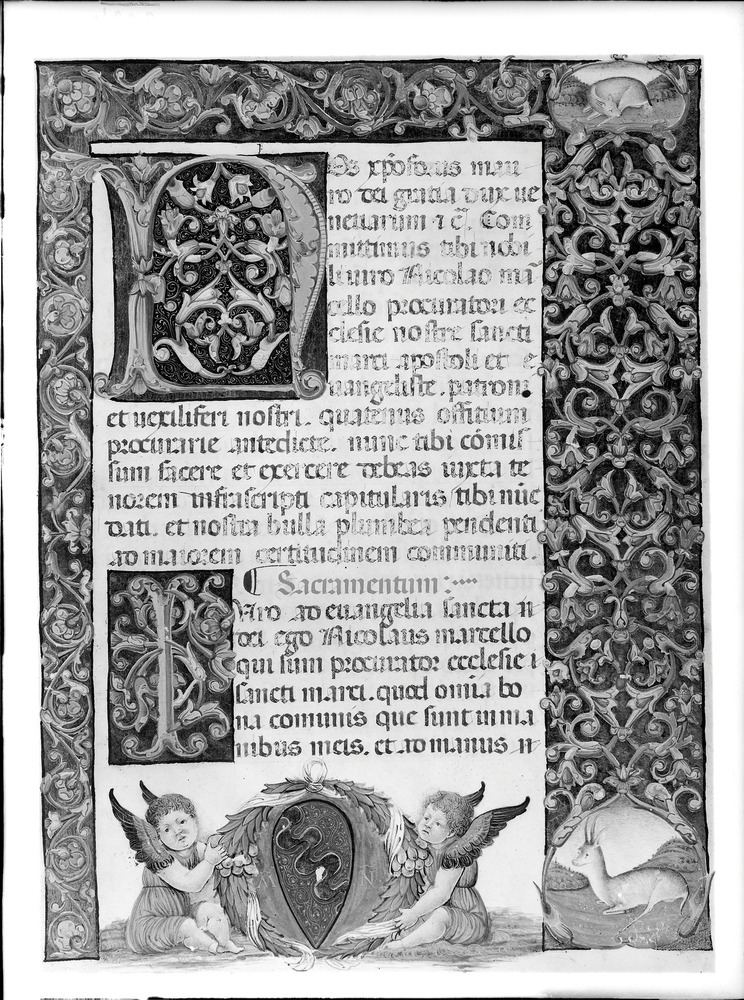 Nos xpōforus mau
ro dei gratia dux ue
netiarum ⁊ c̄. Com
mittimus tibi nobi
li uiro Nicolao mā
cello procuratori ec
clesie nostre sancti
marci apostoli et e
uangeliste. patroni
et uexiliferi nostri. quatenus offitium
procuratie antedicte. nunc tibi cōmis
sum facere et exercere debeas iuxta te
norem infrascripti capitularis tibi nūc
dati. et nostra bulla plumbea pendenti
ad maiorem certitudinem communiti.
Sacramentum:
Iuro ad euangelia sancta
dei ego Nicolaus marcello
qui sum procurator ecclesie
sancti marci. quod omīa bo
na communis que sunt in ma
nibus meis. et ad manus